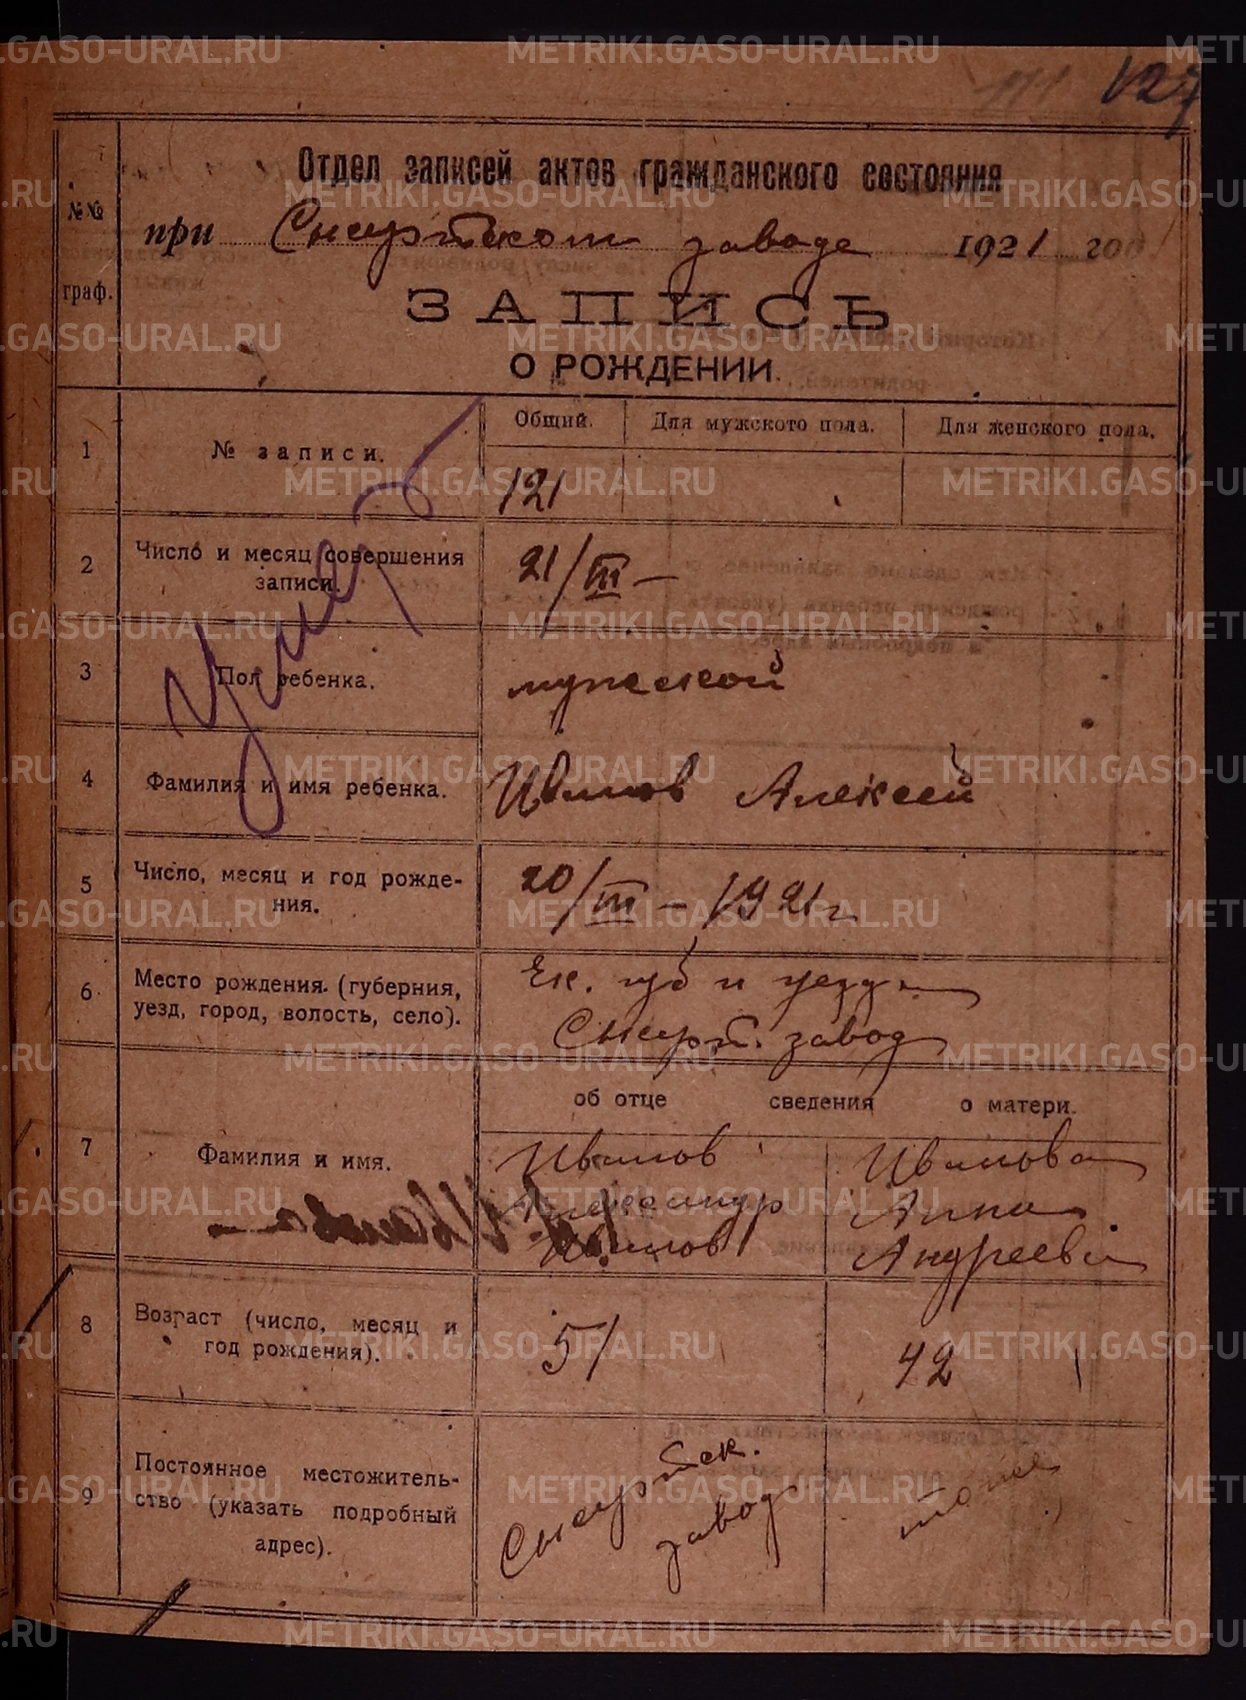 127
Отдел записей актов гражданского состояния
при Сысертском заводе 1921 года
№№ граф.
ЗАПИСЬ
О РОЖДЕНИИ.
1 № записи. Общий. Для мужского пола. Для женского пола.
121
2 Число и месяц совершения записи. 21/III –
3 Пол ребенка. мужской
4 Фамилия и имя ребенка. Иванов Алексей
5 Число, месяц и год рожде-
ния. 20/III – 1921 г
6 Место рождения. (губерния,
уезд, город, волость, село). Ек. губ и уезда
Сысерт. завод
об отце сведения о матери.
7 Фамилия и имя. Иванов Иванова
Александр Анна
Иванов Андреевна
8 Возраст (число, месяц и
год рождения). 51 42
9 Постоянное местожитель-
ство (указать подробный
адрес). Сысертск. завод тоже
Умер
METRIKI.GASO-URAL.RU